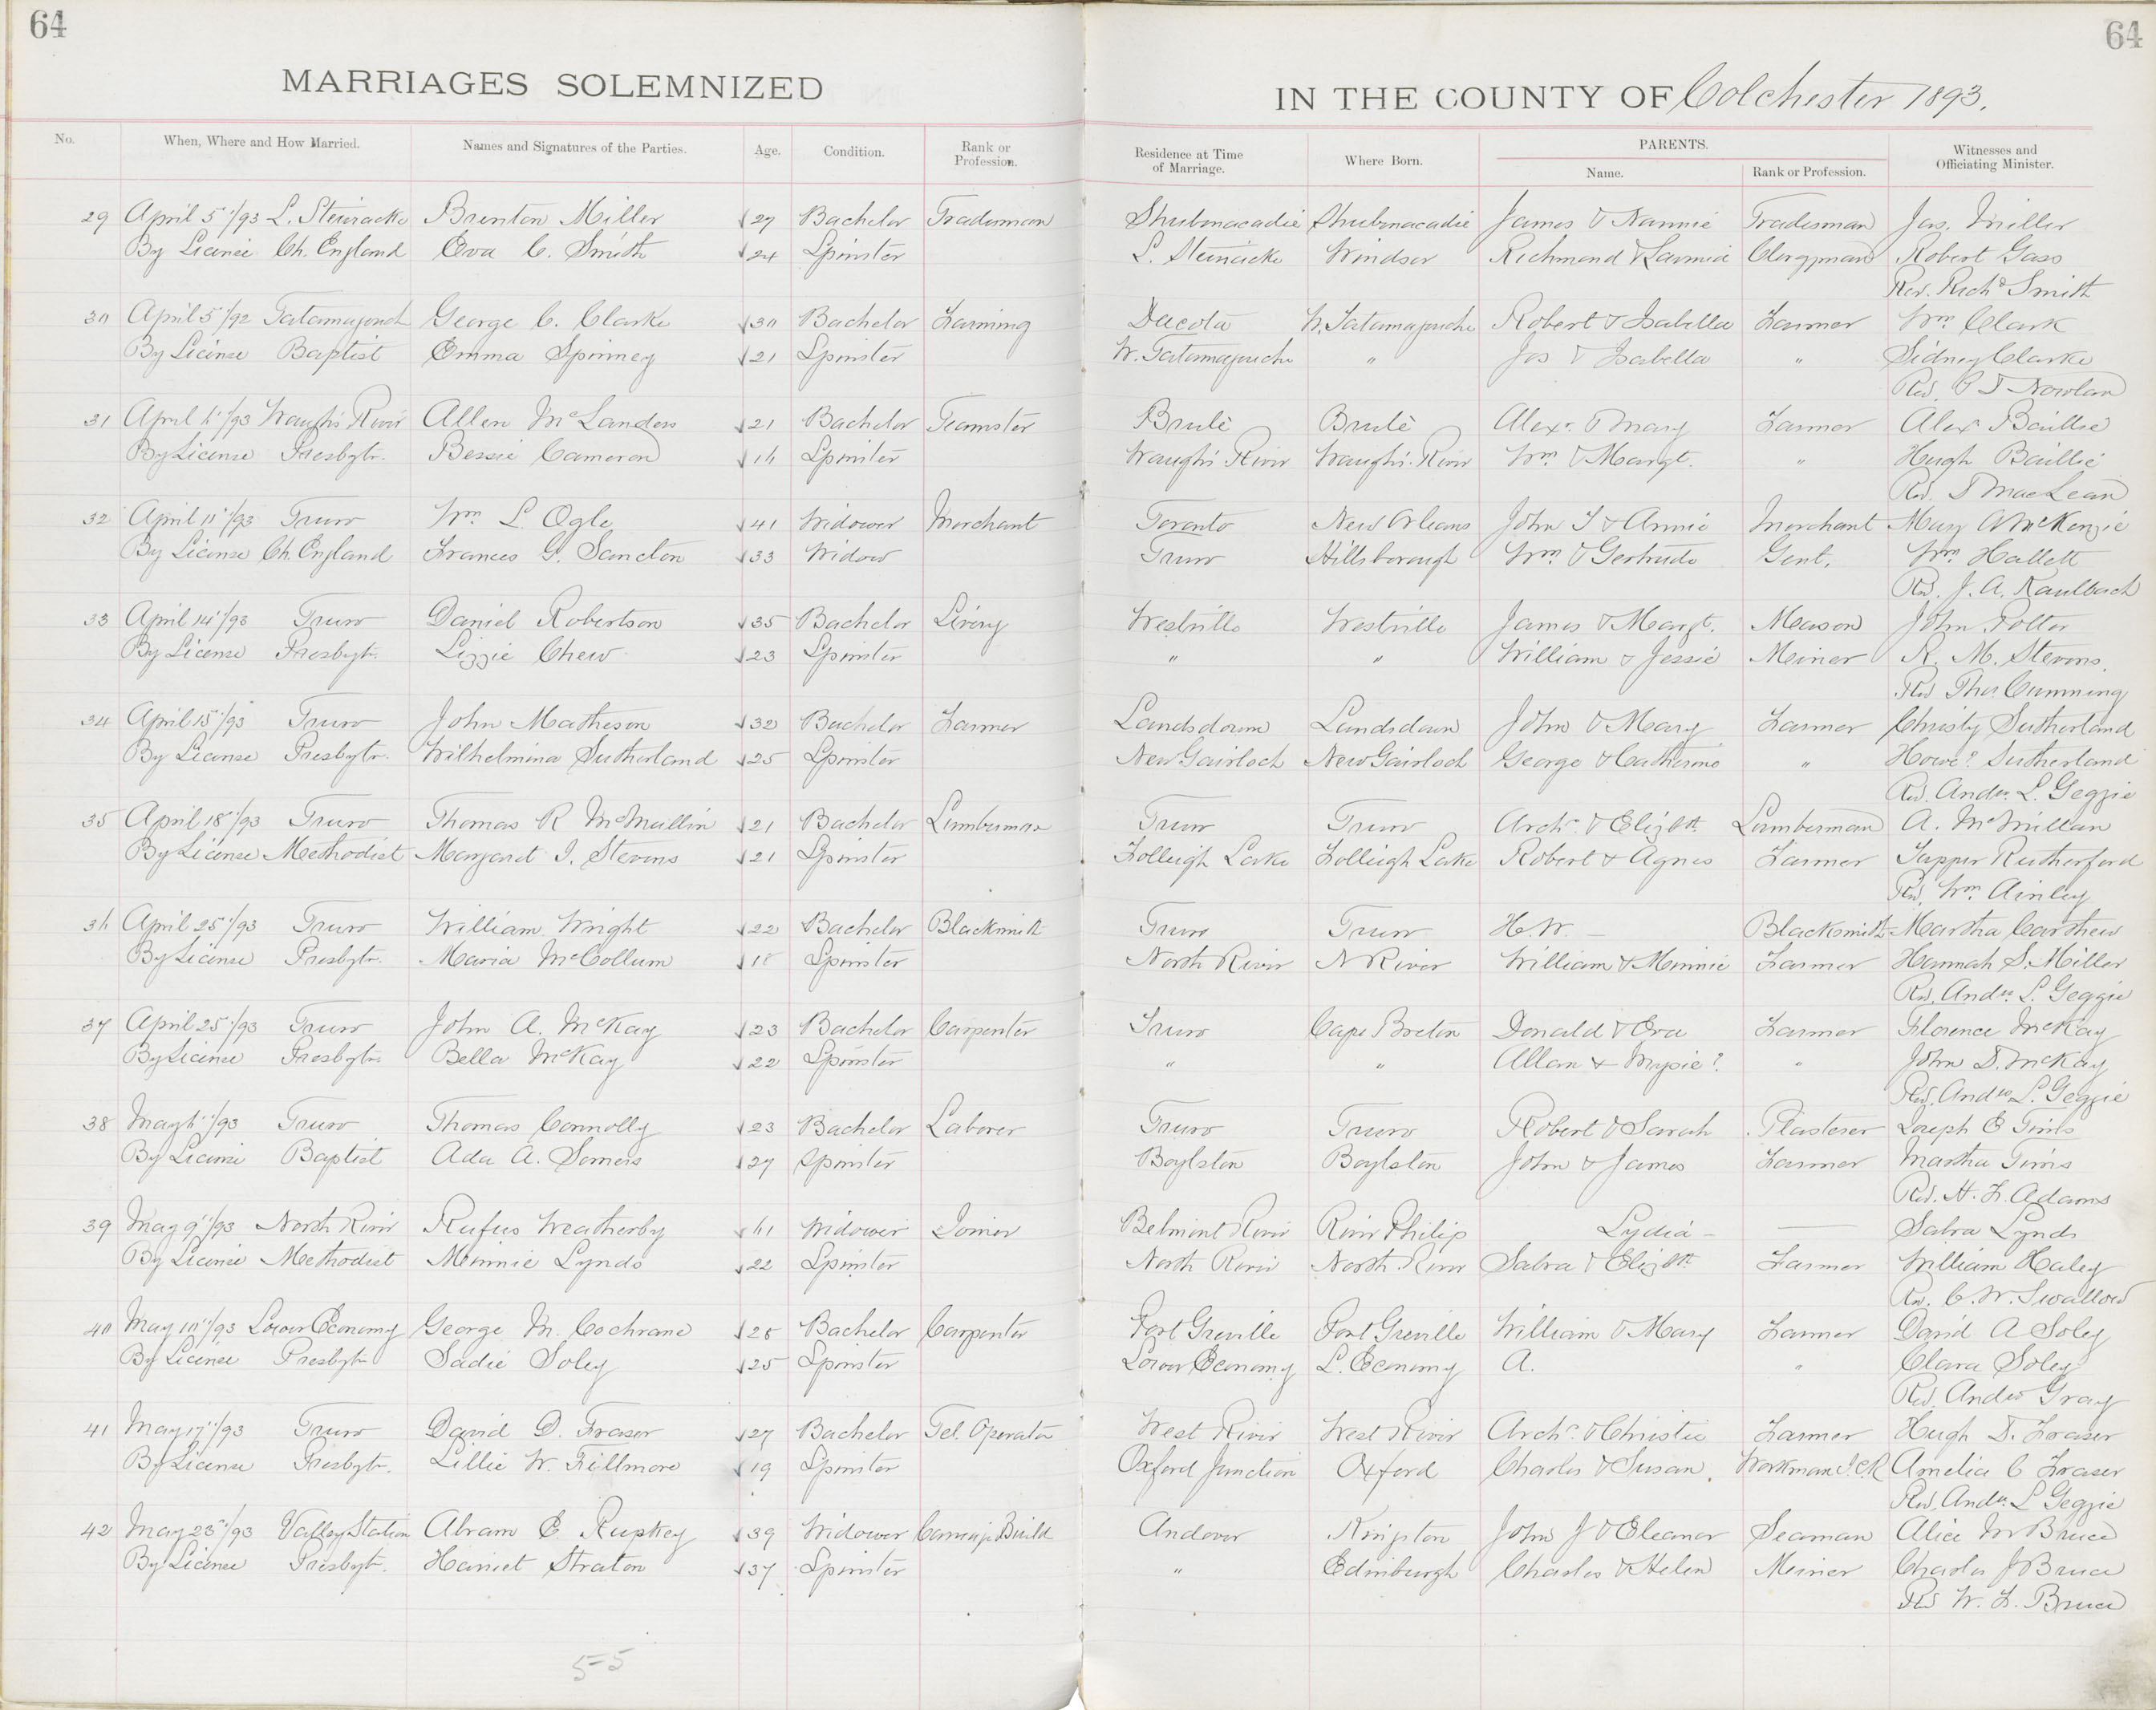 64
64
MARRIAGES SOLEMNIZED
IN THE COUNTY OF Colchester 1893.
No. When, Where and How Married. Names and Signatures of the Parties. Age. Condition. Rank or Profession. Residence at Time of Marriage. Where Born. PARENTS. Name. Rank or Profession. Witnesses and Officiating Minister.
29 April 5"/93 L. Steiviacke Brenton Miller 27 Bachelor Tradesman Shubenacadie Shubenacadie James & Nannie Tradesman Jas. Miller
By License Ch. England Eva C. Smith 24 Spinster L. Windsor Richmond & Clergyman Robert Gass
Rev. Richd Smith
30 April 5"/92 Tatamagouch George C. Clarke 30 Bachelor Farming Dacota W. Tatamagouche Robert & Isabella Farmer Wm Clark
By License Baptist Emma Spinney 21 Spinster W. Tatamagouche " Jas & Isabella " Sidney Clarke
Rev. Nowlan
31 April 6"/93 Waugh's River Allen McLanders 21 Bachelor Teamster Brulè Brulè Alexr & Mary Farmer Alexr Baillie
By License Presbytn. Bessie Cameron 16 Spinster Waugh's River Waugh's River Wm & Margt. " Hugh Baillie
Rev. D MacLean
32 April 11"/93 Truro Wm L. Ogle 41 Widower Merchant Toronto New Orleans John T & Annie Merchant Mary A McKenzie
By License Ch. England Frances G. Sancton 33 Widow Truro Hillsborough Wm & Gertrude Gent. Wm Hallett
Rev. J. A. Kaulbach
33 April 14"/93 Truro Daniel Robertson 35 Bachelor Livery Westville Westville James & Margt. Mason John Potter
By License Presbytn. Lizzie Chew 23 Spinster " " William & Jessie Meiner R. M. Stevens.
Rev Thos. Cumming
34 April 15"/93 Truro John Matheson 32 Bachelor Farmer Landsdowne Landsdown John & Mary Farmer Christy Sutherland
By License Presbytn. Wilhelmina Sutherland 25 Spinster New Gairloch New Gairloch George & Catherine " Sutherland
Rev. Andw. L. Geggie
35 April 18"/93 Truro Thomas R McMullin 21 Bachelor Lumberman Truro Truro Archd. & Elizbth Lumberman A. McMillan
By License Methodist Margaret I. Stevens 21 Spinster Folleigh Lake Folleigh Lake Robert & Agnes Farmer Tupper Rutherford
Rev. Wm Ainley
36 April 25"/93 Truro William Wright 22 Bachelor Blacksmith Truro Truro H. W. — Blacksmith Martha Carthew
By License Presbytn. Maria McCollum 18 Spinster North River N River William & Minnie Farmer Hannah S. Miller
Rev. Andw. L. Geggie
37 April 25"/93 Truro John A. McKay 23 Bachelor Carpenter Truro Cape Breton Donald & Eva Farmer Florence McKay
By License Presbytn Bella McKay 22 Spinster " " Allan & Mysie? " John D. McKay
Rev. Andw L. Geggie
38 May 6"/93 Truro Thomas Connolly 23 Bachelor Laborer Truro Truro Robert & Sarah Plasterer Joseph E
By License Baptist Ada A. Somers 27 Spinster Boylston Boylston John & James Farmer Martha
Rev. H. F. Adams
39 May 9"/93 North River Rufus Weatherby 61 Widower Joiner Belmont River River Philip Lydia — — Salva Lynds
By License Methodist Minnie Lynds 22 Spinster North River North River Salva & Elizbth Farmer William Haley
Rev. C. W. Swallow
40 May 10"/93 Lower Economy George M. Cochrane 28 Bachelor Carpenter Port Greville Port Greville William & Mary Farmer David A Soley
By License Presbytn Sadie Soley 25 Spinster Lower Economy L. Economy A. " Clara Soley
Rev. Andw Gray
41 May 17"/93 Truro David D. Fraser 27 Bachelor Tel. Operator West River West River Archd. & Christie Farmer Hugh D. Fraser
By License Presbytn. Lillie W. Fillmore 19 Spinster Oxford Junction Oxford Charles & Susan Workman I.C.R Amelia C Fraser
Rev. Andw. L Geggie
42 May 23"/93 Valley Station Abram E. Rupkey 39 Widower Carriage Build Andover Kingston John J & Eleanor Seaman Alice M Bruce
By License Presbytn. Harriet Straton 37 Spinster " Edinburgh Charles & Helen Meiner Charles J Bruce
Rev W. F. Bruce
55